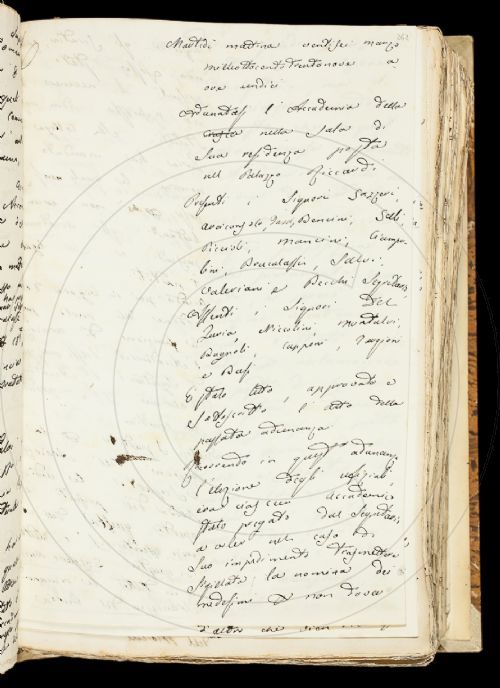 Martedi mattina ventisei marzo
milleottocentotrentanove a
ore undici
Adunatasi l'Accademia della
nella Sala di
Sua residenza posta
nel Palazzo Riccardi
Presenti i Signori Gazzeri,
arciconsolo, Bencini, Gelli
Piccioli, Mancini, Ciampo
lini, Brucalassi, Salvi,
Valeriani e Becchi Segretario
Assenti i Signori Del
Furia, Niccolini, Montalvi,
Bagnoli, Capponi, Targioni
e Basi
È stato letto, approvato e
Sottoscritto l'atto della
passata adunanza
in quest'adunanza
l'elezione degli
era ciascun accademico
stato pregato dal Segretario
a voler nel caso di
Suo impedimento trasmettere
Sigillata la nomina dei
medesimi e non
d'altro che